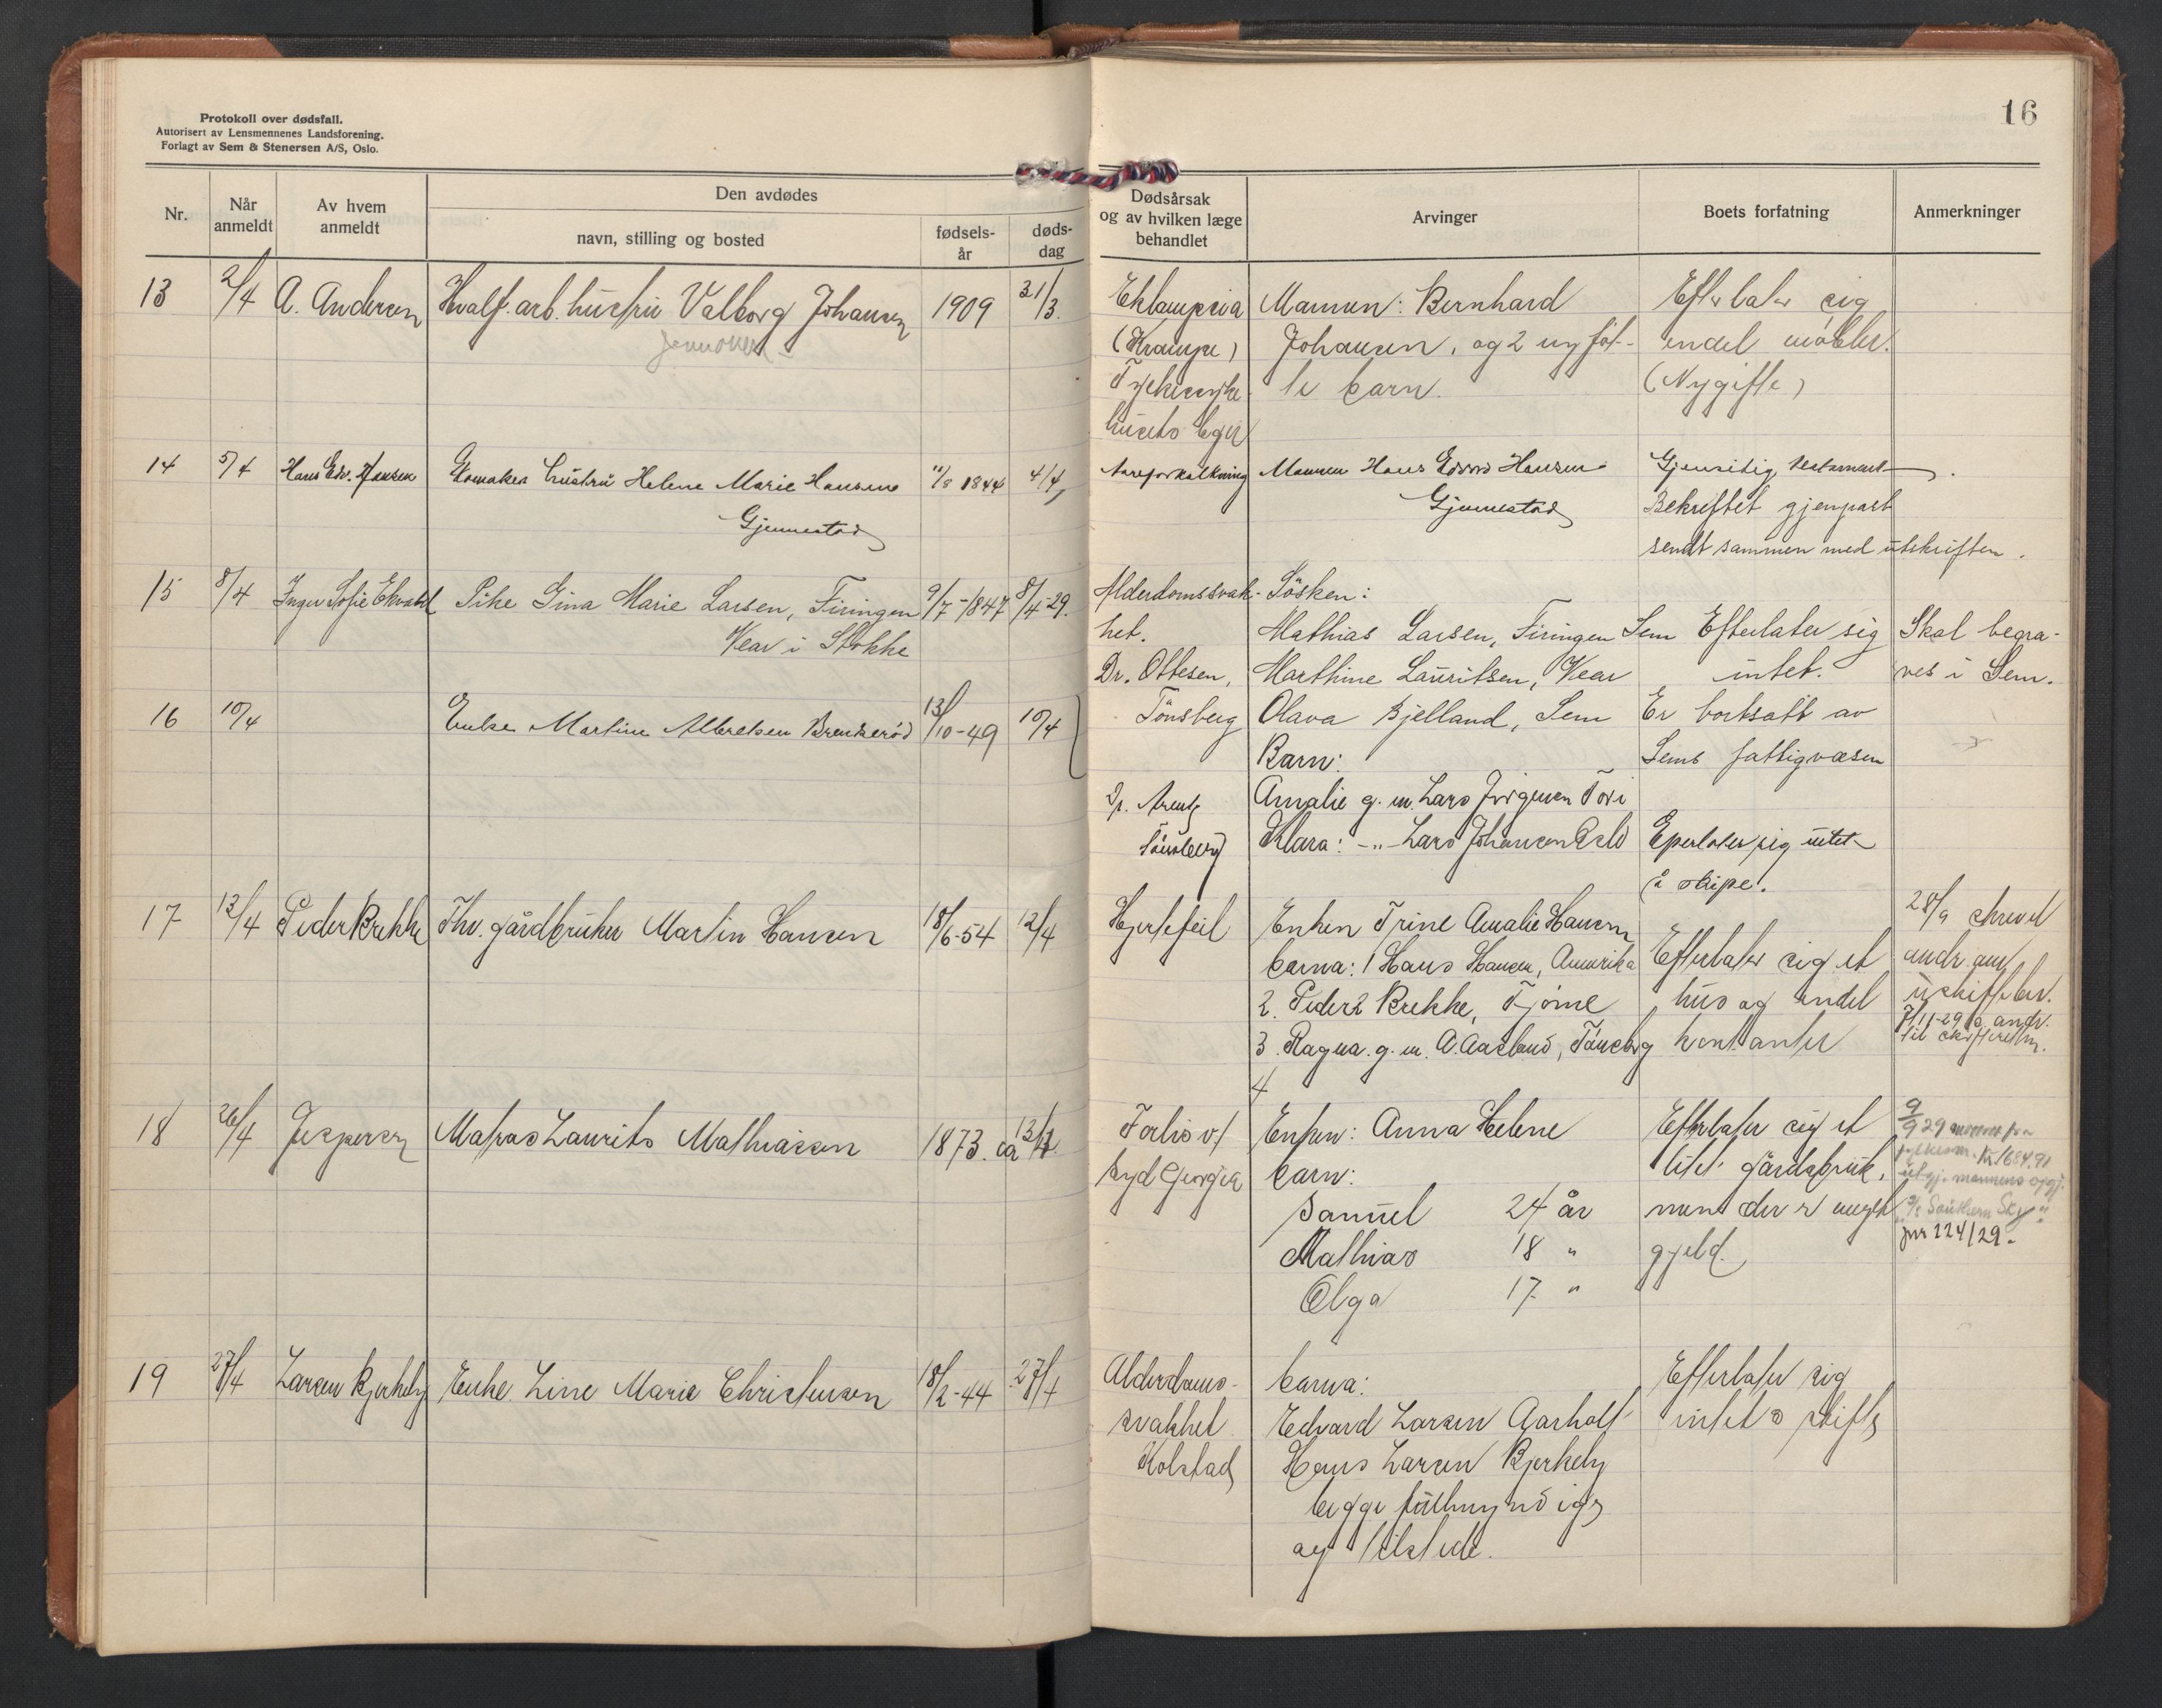 Protokoll over dødsfall.
Autorisert av Lensmennenes Landsforening.
Forlagt av Sem & Stenersen A/S, Oslo.
16
Nr.
Når anmeldt
Av hvem anmeldt
Den avdødes
navn, stilling og bosted
fødsels-år
døds-dag
Dødsårsak og av hvilken læge behandlet
Arvinger
Boets forfatning
Anmerkninger
13 2/4 A. Andersen Hvalf. arb. hustru Valborg Johansen 1909 31/3.
Eklampsia
(Krampe)
husets læge
Mannen: Bernhard
Johansen, og 2 ny föd-
te barn.
Efterlater sig
endel möbler.
(Nygifte)
14 5/4 Hans Edv. Hansen hustru Helene Marie Hansen 11/8 1844 4/4
Gjennestad
Aareforkalkning
Mannen Hans Edvard Hansen
Gjennestad
Gjensidig testament.
Bekreftet gjenpart
sendt sammen med utskriften.
15 8/4 Inger Sofie Ekvald Pike Gina Marie Larsen, Firingen 9/7-1847 8/4-29.
Vear i Stokke
Alderdomssvak-
het.
Dr. Ottesen,
Tönsberg
Sösken:
Mathias Larsen, Firingen Sem
Marthine Lauritsen, Vear
Olava Bjelland, Sem
Efterlater sig
intet.
Er bortsatt av
Sems fattigvæsen
Skal begra-
ves i Sem.
16 10/4 Enke Martine Albretsen Brenserød 13/10-49 10/4
Dr. Arentz
Tönsberg
Barn:
Amalie g. m. Lars Jörgensen
Klara: -"- Lars Johansen Oslo
Efterlater sig intet
å skifte.
17 13/4 Peder Brekke Fhv. gårdbruker Martin Hansen 18/6-54 12/4
Hjertefeil
Enken Trine Amalie Hansen
barna: 1 Hans Hansen, Amerika
2. Peder Brekke, Tjöme
3. Ragna. g. m. A. Aasland, Tönsberg
4
Efterlater sig et
hus og endel
kontanter
28/9 skrevet
andr. om
uskiftebev.
18 26/4 Jespersen Matros Laurits Mathiassen 1873. ca 13/12.
Forlis v/
Syd Georgia
Enken: Anna Helene
barn:
Samuel 24 år
Mathias 18 "
Olga 17 "
Efterlater sig et
litet gårdsbruk,
men der er meget
gjeld.
9/9 29
kr. 1684.91
mannens opgj.
"Southern Sky"
jnr 224/29.
19 27/4 Larsen Bjerkely Enke Line Marie Christensen 18/2-44 27/4
Alderdoms-
svakhet
Kolstad
barna:
Edvard Larsen Aarholt
Hans Larsen Bjerkely
begge fullmyndige
og tilstede.
Efterlater sig
intet å skifte